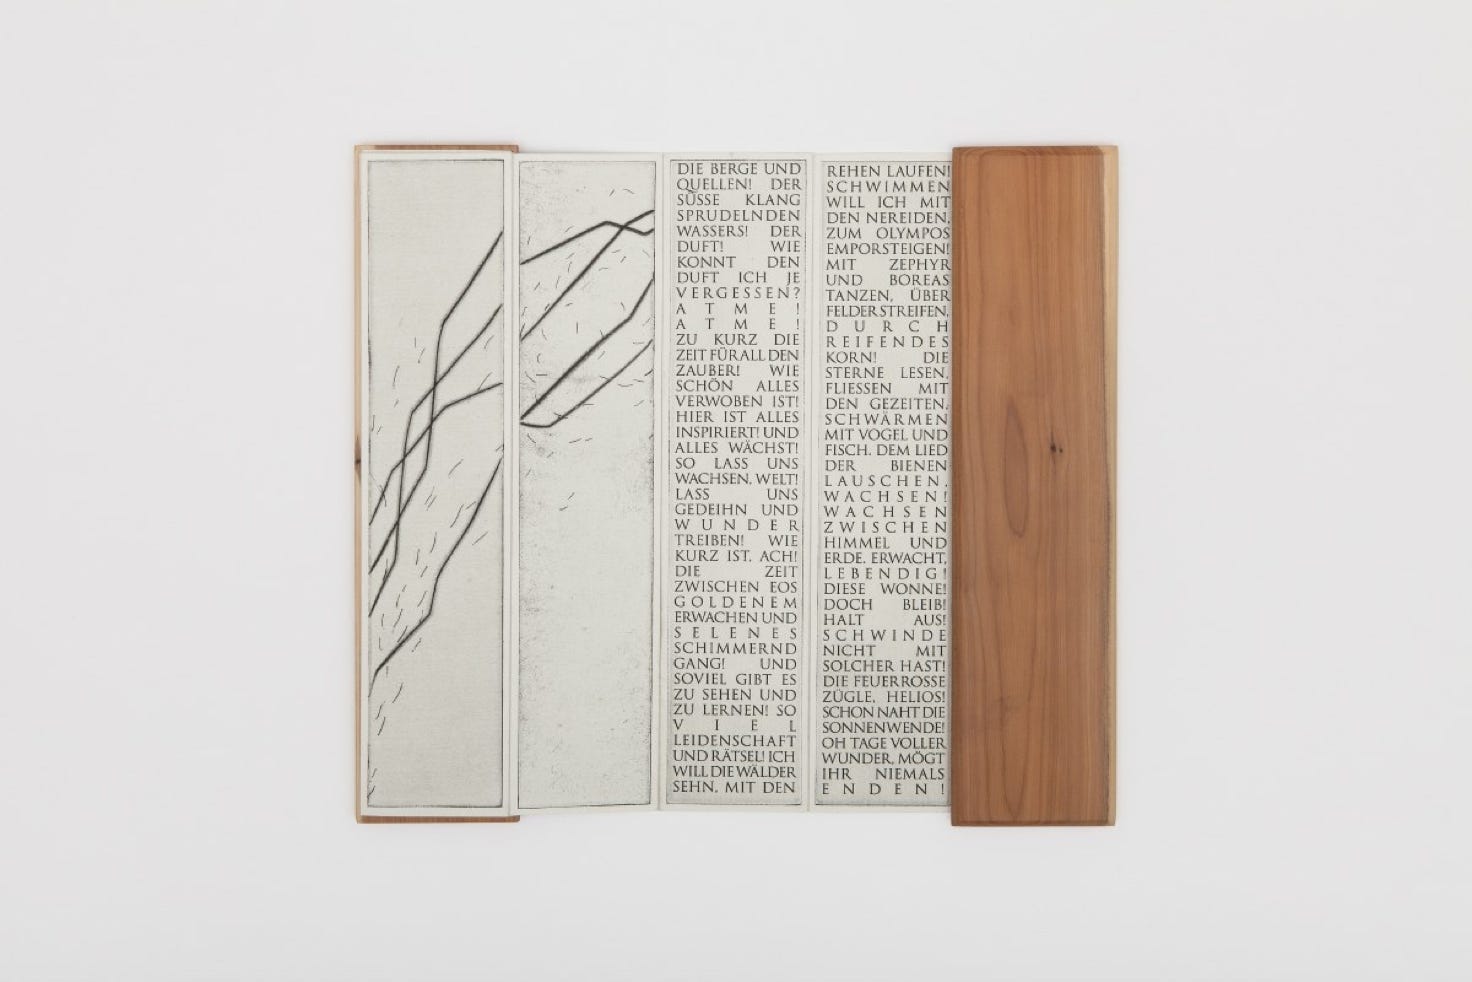 DIE BERGE UND
QUELLEN! DER
SÜSSE KLANG
SPRUDELNDEN
WASSERS! DER
DUFT! WIE
KONNT DEN
DUFT ICH JE
VERGESSEN?
ATME!
ATME!
ZU KURZ DIE
ZEIT FÜR ALL DEN
ZAUBER! WIE
SCHÖN ALLES
VERWOBEN IST!
HIER IST ALLES
INSPIRIERT! UND
ALLES WÄCHST!
SO LASS UNS
WACHSEN, WELT!
LASS UNS
GEDEIHN UND
WUNDER
TREIBEN! WIE
KURZ IST, ACH!
DIE ZEIT
ZWISCHEN EOS
GOLDENEM
ERWACHEN UND
SELENES
SCHIMMERND
GANG! UND
SOVIEL GIBT ES
ZU SEHEN UND
ZU LERNEN! SO
VIEL
LEIDENSCHAFT
UND RÄTSEL! ICH
WILL DIE WÄLDER
SEHN, MIT DEN
REHEN LAUFEN!
SCHWIMMEN
WILL ICH MIT
DEN NEREIDEN,
ZUM OLYMPOS
EMPORSTEIGEN!
MIT ZEPHYR
UND BOREAS
TANZEN, ÜBER
FELDER STREIFEN,
DURCH
REIFENDES
KORN! DIE
STERNE LESEN,
FLIESSEN MIT
DEN GEZEITEN,
SCHWÄRMEN
MIT VOGEL UND
FISCH, DEM LIED
DER BIENEN
LAUSCHEN,
WACHSEN!
WACHSEN
ZWISCHEN
HIMMEL UND
ERDE. ERWACHT,
LEBENDIG!
DIESE WONNE!
DOCH BLEIB!
HALT AUS!
SCHWINDE
NICHT MIT
SOLCHER HAST!
DIE FEUERROSSE
ZÜGLE, HELIOS!
SCHON NAHT DIE
SONNENWENDE!
OH TAGE VOLLER
WUNDER, MÖGT
IHR NIEMALS
ENDEN!